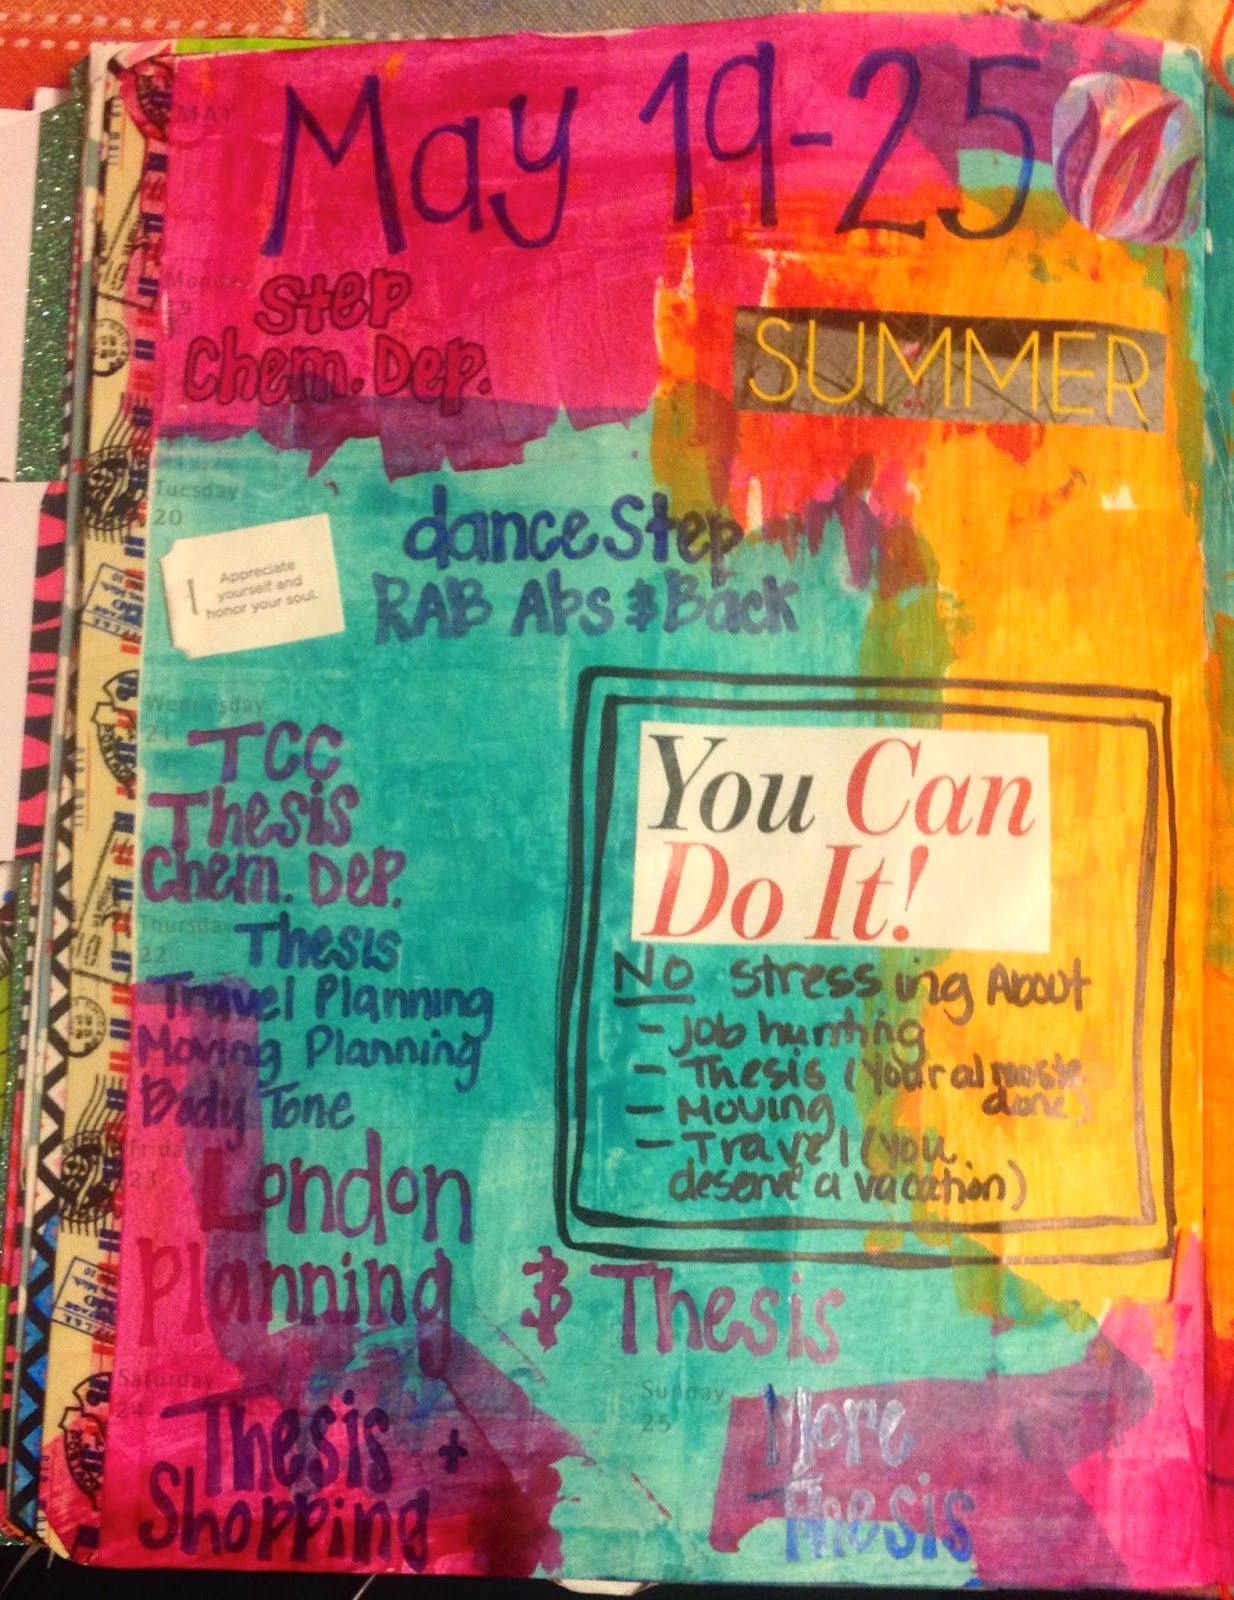 May 19-25
MAY
Monday
19
Step
Chem. Dep.
SUMMER
Tuesday
20
Appreciate
yourself and
honor your soul.
dance Step
RAB Abs & Back
Wednesday
21
TCC
Thesis
Chem. Dep.
You Can
Do It!
No stressing About
- Job hunting
- Thesis (your almoste
done)
- Moving
- Travel (you
deserve a vacation)
Thursday
22
Thesis
Travel Planning
Moving Planning
Body Tone
Friday
23
London
Planning & Thesis
Saturday
24
Thesis +
Shopping
Sunday
25
More
Thesis